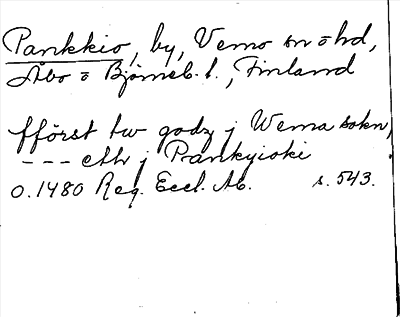 Pankkio, by, Vemo sn o hd,
Åbo o Björneb. l., Finland
fförst tw godz j Wema sokn,
--- eth j Pankyioki
o. 1480 Reg. Eccl. Ab. s. 543.